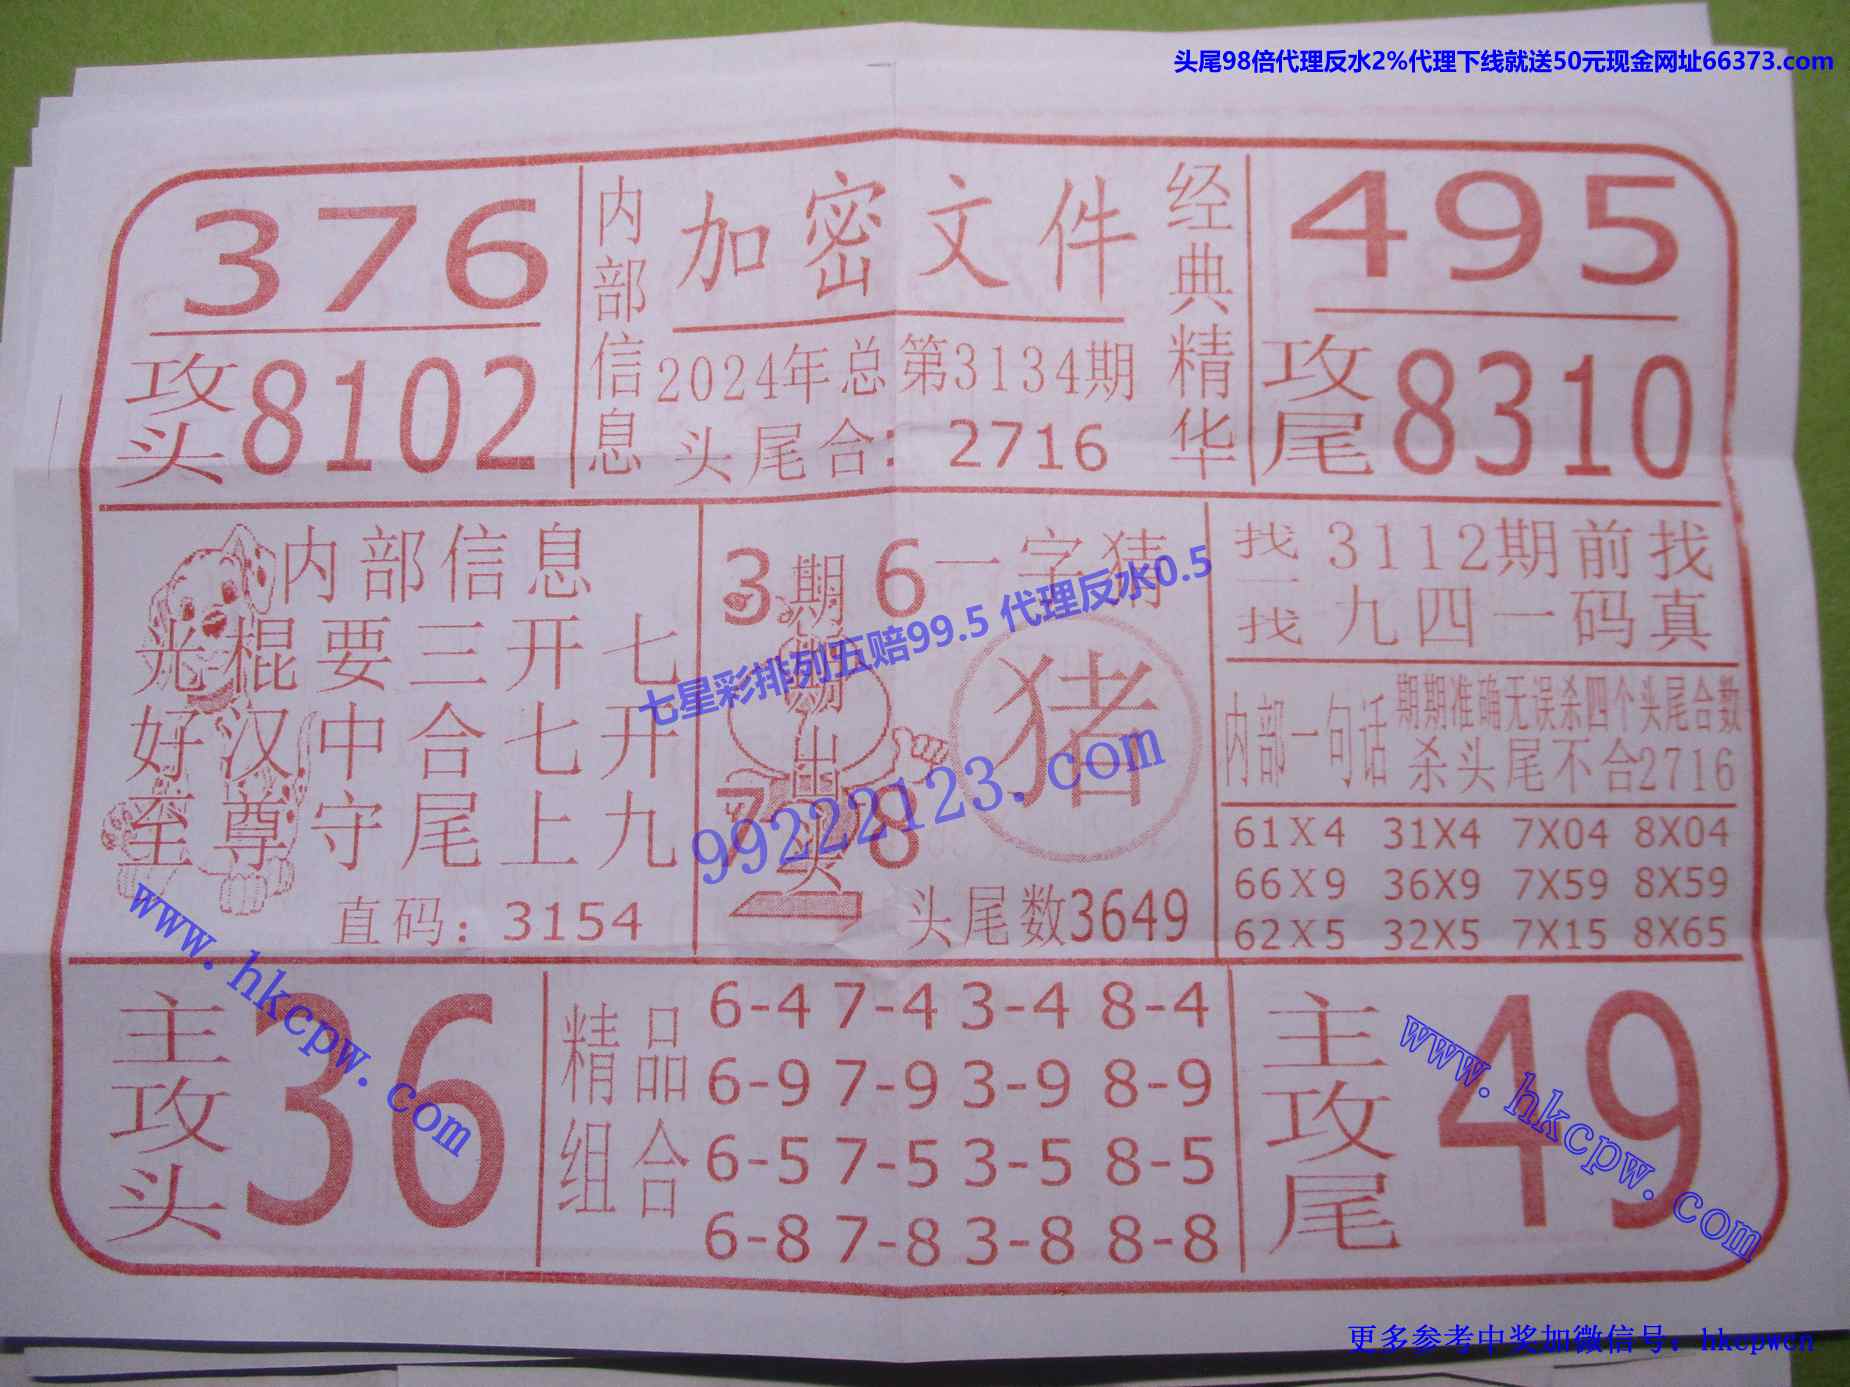 头尾98倍代理反水2%代理下线就送50元现金网址66373.com
376
攻头8102
内部信息
加密文件
2024年总第3134期
头尾合：2716
经典精华
495
攻尾8310
内部信息
光棍要三开七
好汉中合七开
至尊守尾上九
直码：3154
3 6
期期期出头
7 8
一字猜
猪
头尾数3649
找一找
3112期前找
九四一码真
内部一句话
期期准确无误杀四个头尾合数
杀头尾不合2716
61X4 31X4 7X04 8X04
66X9 36X9 7X59 8X59
62X5 32X5 7X15 8X65
主攻头
36
精品组合
6-4 7-4 3-4 8-4
6-9 7-9 3-9 8-9
6-5 7-5 3-5 8-5
6-8 7-8 3-8 8-8
主攻尾
49
七星彩排列五赔99.5 代理反水0.5
99222123.com
www.hkcpw.com
www.hkcpw.com
更多参考中奖加微信号：hkcpwcn